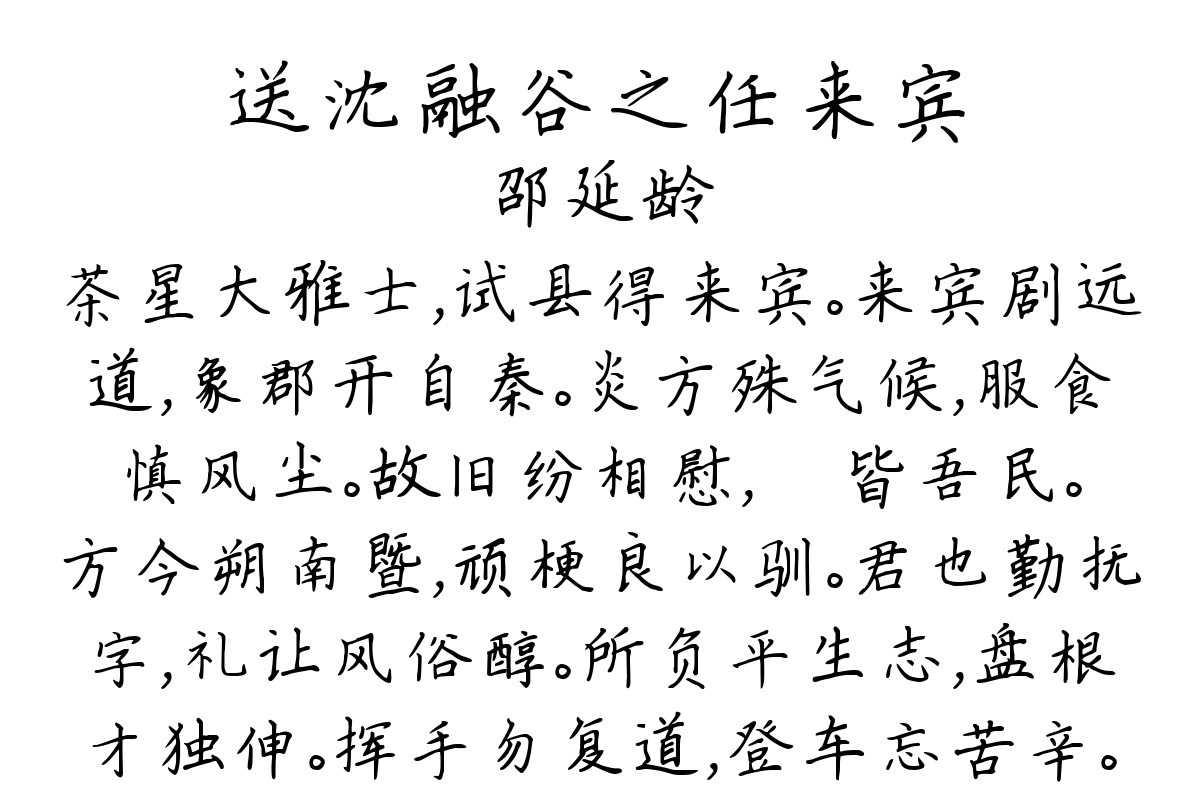 送沈融谷之任来宾
邵延龄
茶星大雅士,试县得来宾。来宾剧远
道,象郡开自秦。炎方殊气候,服食
慎风尘。故旧纷相慰, 皆吾民。
方今朔南暨,顽梗良以驯。君也勤抚
字,礼让风俗醇。所负平生志,盘根
才独伸。挥手勿复道,登车忘苦辛。